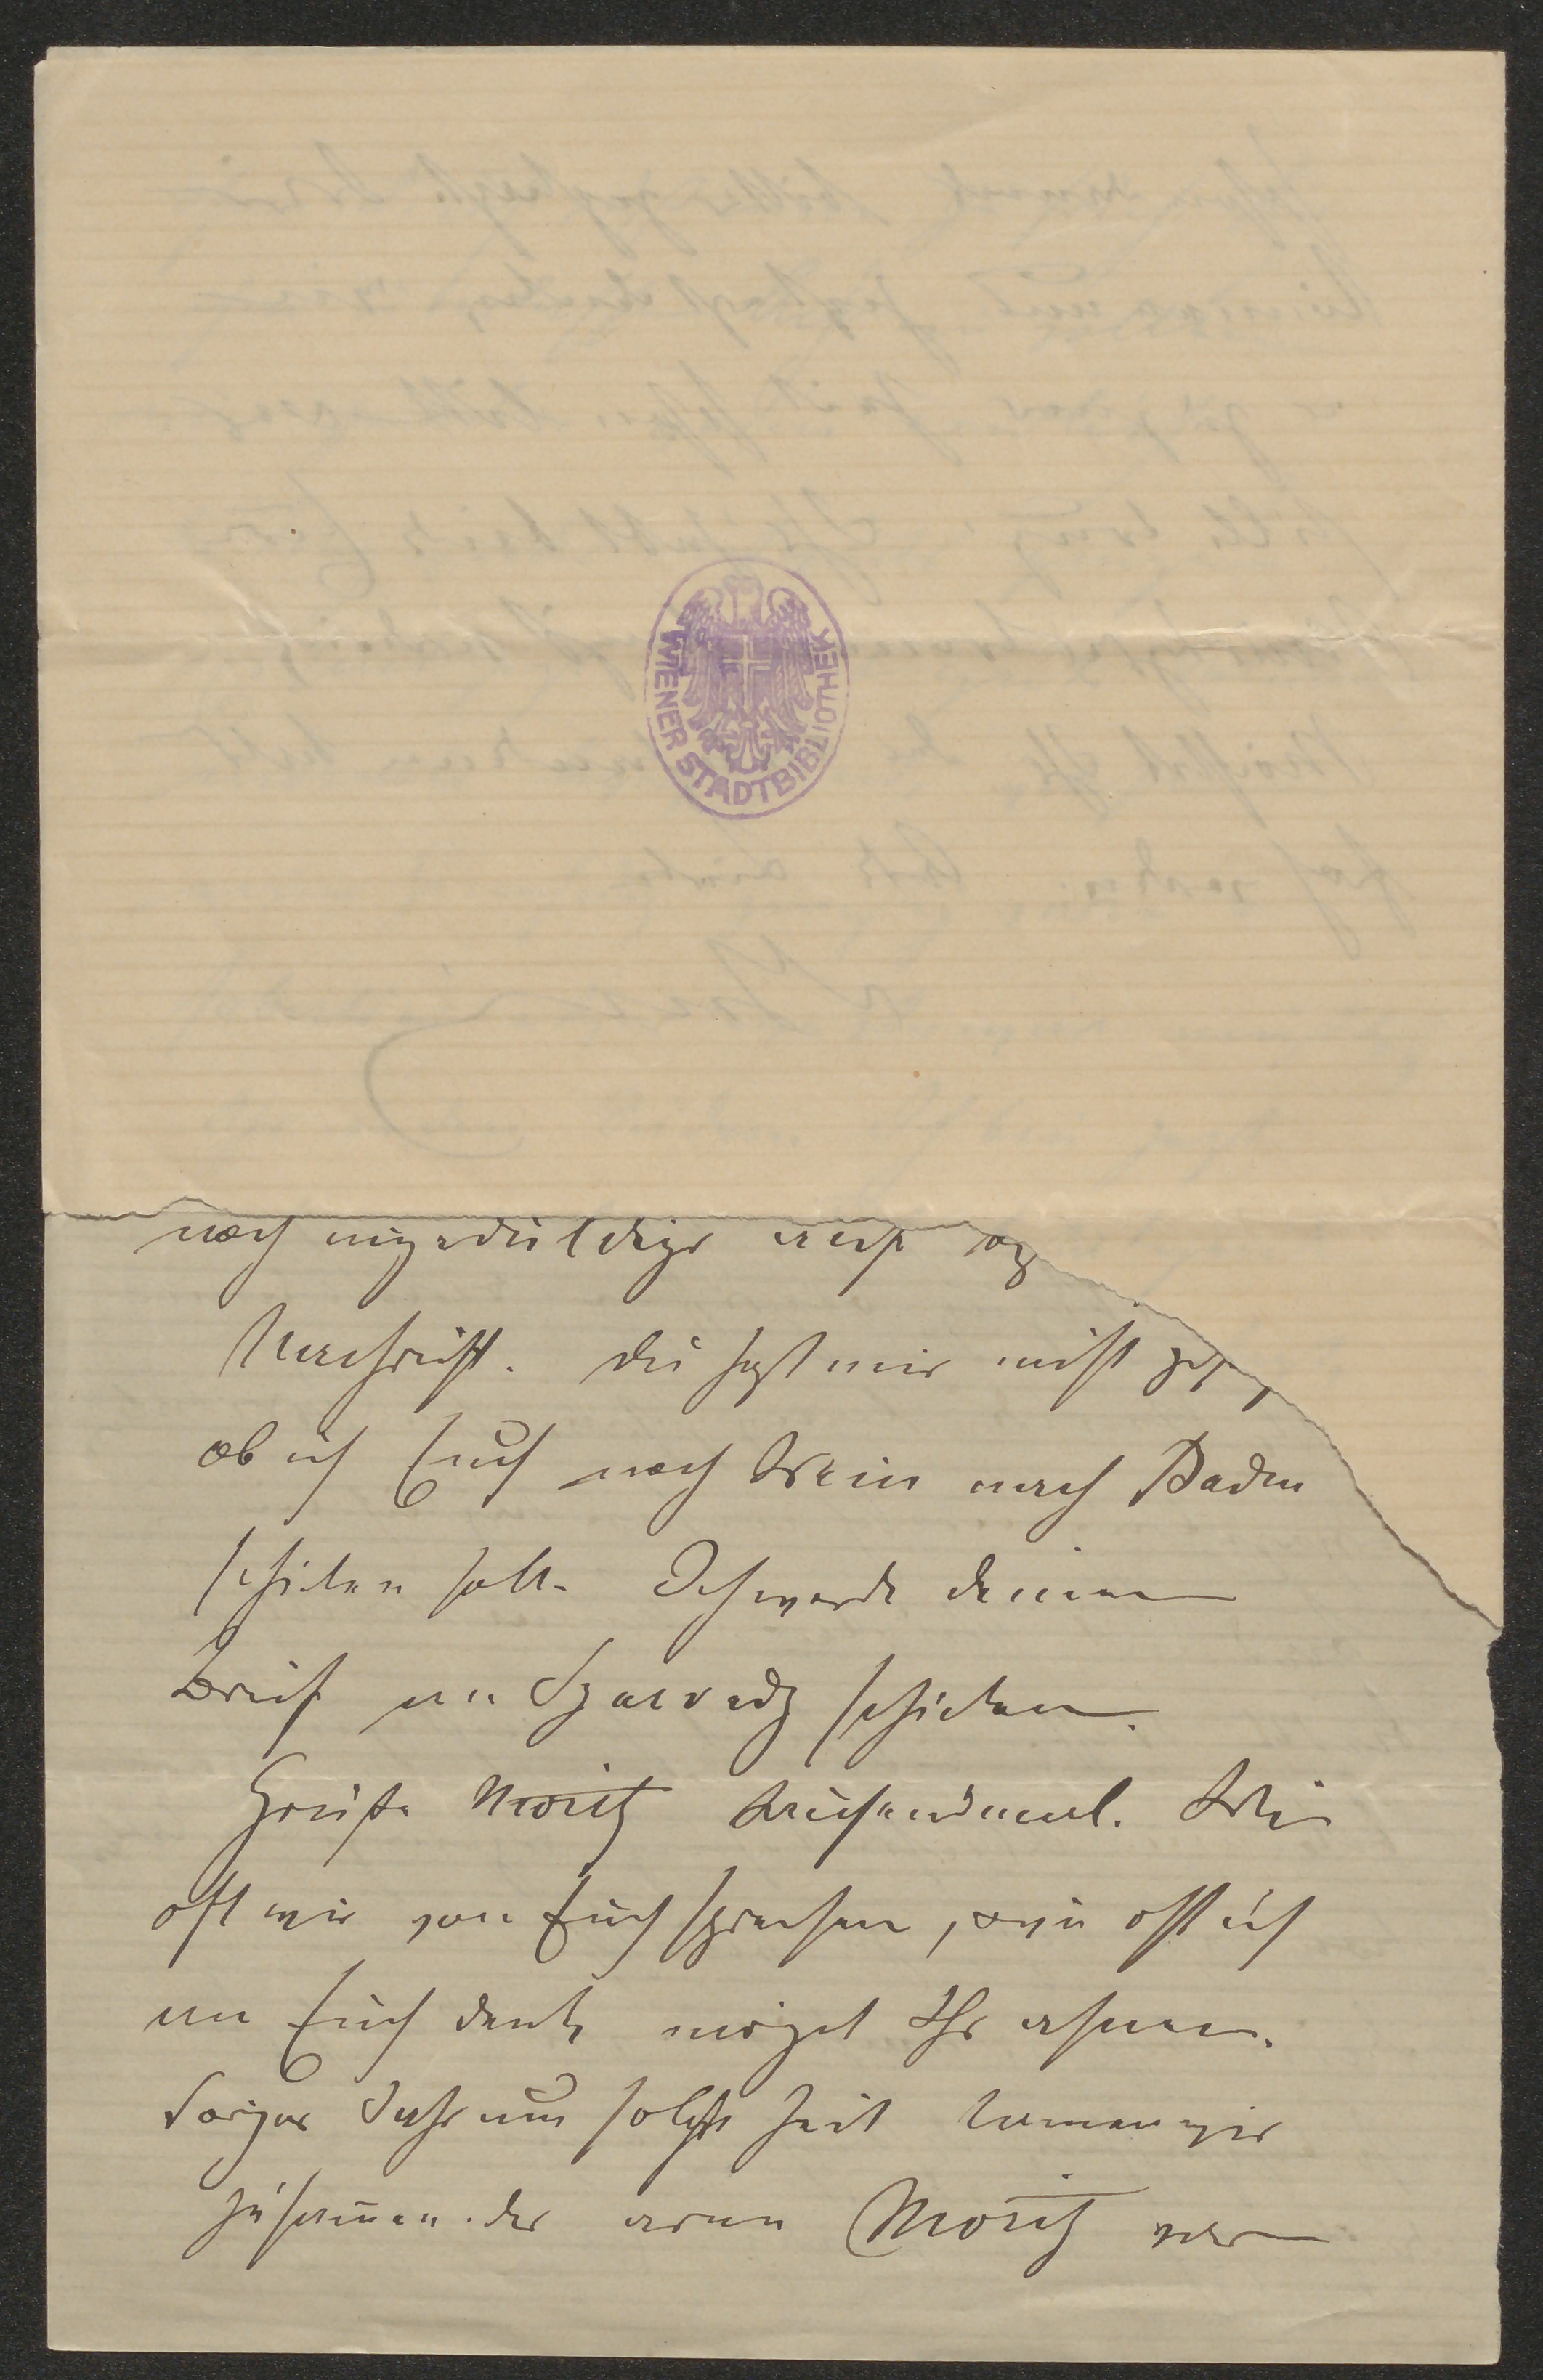 WIENER STADTBIBLIOTHEK
noch ungeduldiger auf
Nachricht. Du hast mir nicht ges
ob ich Euch noch Wein nach Baden
schicken soll. Ich werde deinen
Brief an Szarvady schicken.
Grüße Moritz tausendmal. Wie
oft wir von Euch sprechen, wie oft ich
an Euch denke möget Ihr ahnen.
Voriges Jahr um solche Zeit kamen wir
zusammen. Der arme Moritz war